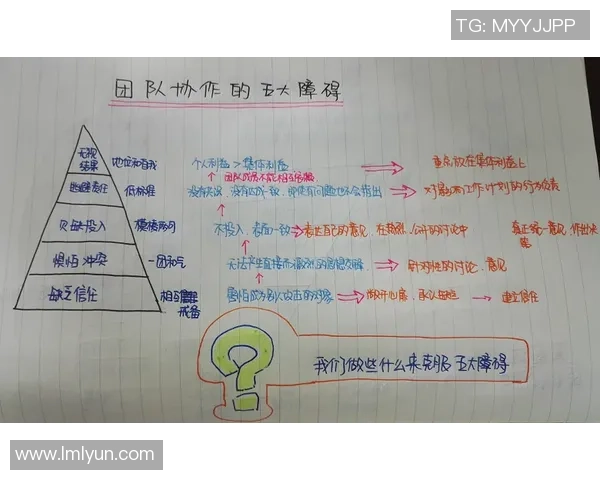 TG: MYYJJPP
团队协作的五大障碍
无视
结果 地位和自我 个人利益 > 集体利益 重点放在集体利益上
团队成员不能相互
逃避责任 低标准 没有失误、没有达成一致,即使有问题也不会指出 对最后工作计划的行为负责
欠缺投入 模棱两可 不投入,表面一致 表达自己的意见,在激烈、公开的讨论中 真正统一意见,作出决策
惧怕冲突 一团和气 无法产生直接而激烈的思想交锋 针对性的讨论、意见
缺乏信任 相互
戒备 害怕成为别人攻击的对象 敞开心扉,承认缺点 建立信任
我们做些什么来克服五大障碍
www.lmlyun.com